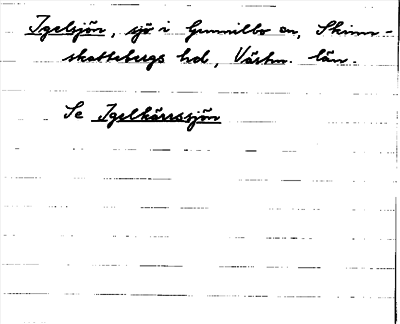 Igelsjön, sjö i Gunnilbo sn, Skinn-
skattebergs hd, Västm. län.
Se Igelkärrssjön